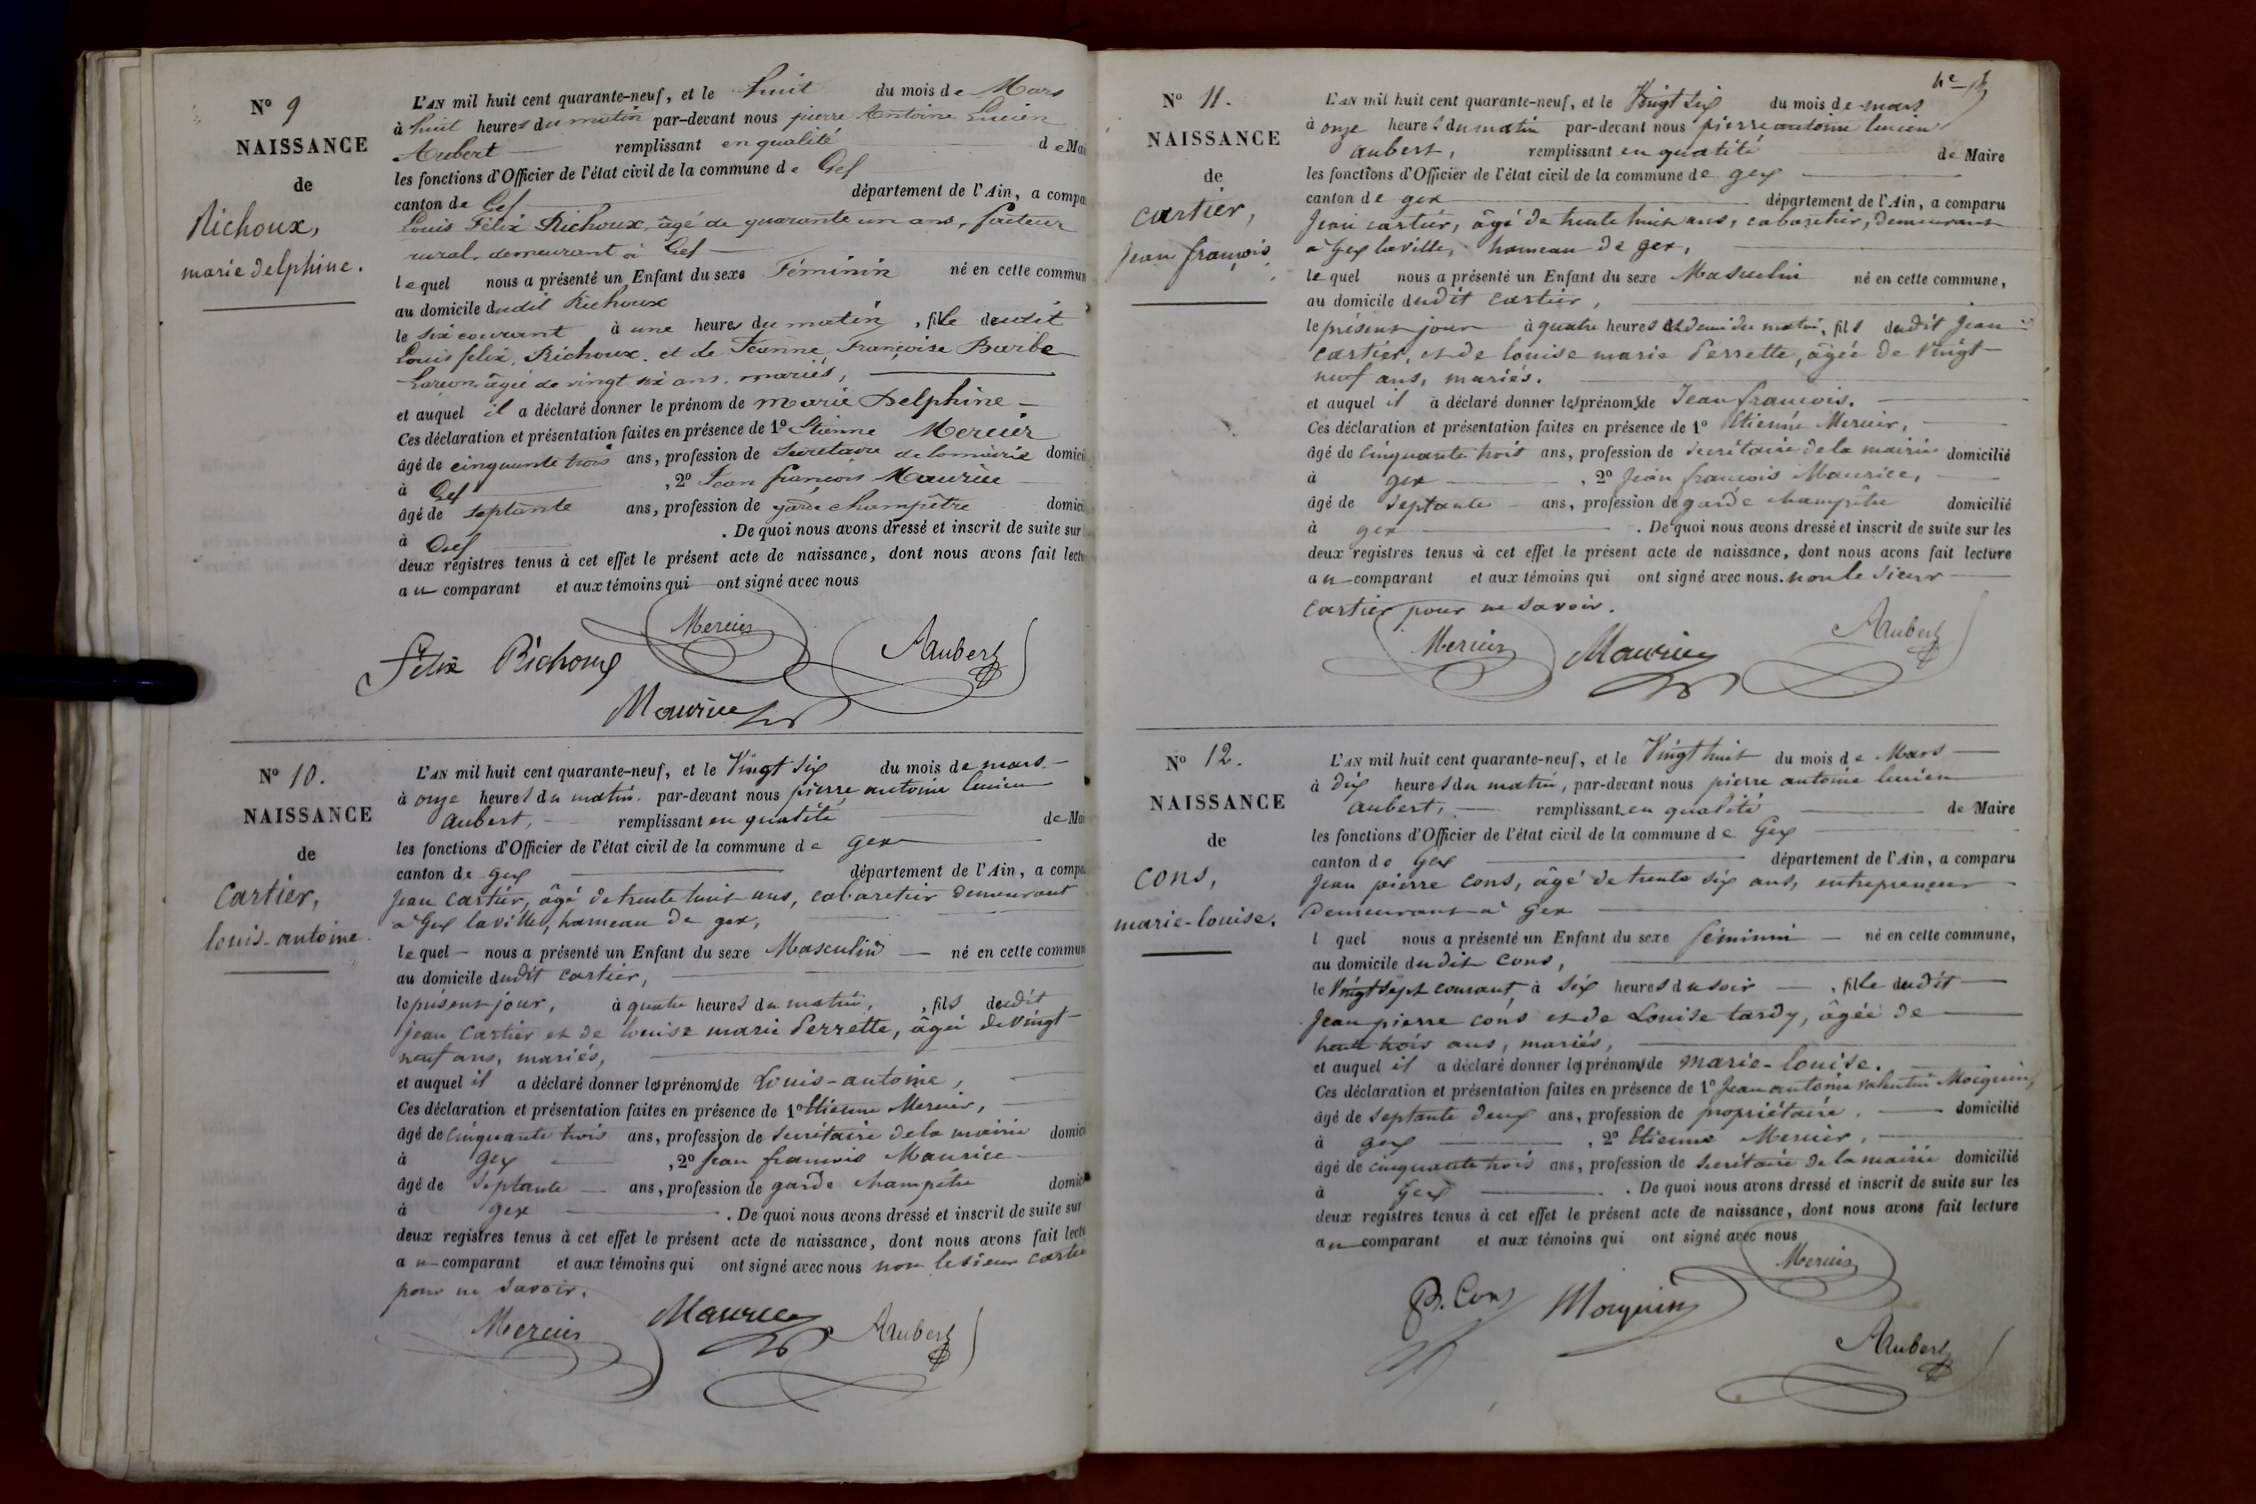 N° 9
NAISSANCE
de
Richoux,
marie delphine.
L'AN mil huit cent quarante-neuf, et le huit du mois de Mars
à huit heures du matin par-devant nous pierre Antoine Lucien
Aubert remplissant en qualité de Mai
les fonctions d'Officier de l'état civil de la commune de Gex
canton de Gex département de l'Ain, a compa
Louis Félix Richoux, âgé de quarante un ans, facteur
rural, demeurant à Gex
lequel nous a présenté un Enfant du sexe Féminin né en cette commun
au domicile dudit Richoux
le six courant à une heures du matin, fille dudit
Louis félix Richoux et de Jeanne Françoise Barbe
âgée de vingt six ans, mariés,
et auquel il a déclaré donner le prénom de marie Delphine
Ces déclaration et présentation faites en présence de 1° Etienne Mercier
âgé de cinquante trois ans, profession de Secrétaire de la mairie domici
à Gex, 2° Jean françois Maurice
âgé de septante ans, profession de garde champêtre domici
à Gex. De quoi nous avons dressé et inscrit de suite sur
deux registres tenus à cet effet le présent acte de naissance, dont nous avons fait lect
au comparant et aux témoins qui ont signé avec nous
Mercier
Félix Richoux
AAubert
Maurice
N° 10.
NAISSANCE
de
Cartier,
louis-antoine.
L'AN mil huit cent quarante-neuf, et le Vingt six du mois de mars
à onze heures du matin par-devant nous pierre antoine lucien
aubert, remplissant en qualité de Mai
les fonctions d'Officier de l'état civil de la commune de gex
canton de gex département de l'Ain, a compa
Jean Cartier, âgé de trente huit ans, cabaretier demeurant
à Gex la ville, hameau de gex,
lequel nous a présenté un Enfant du sexe Masculin né en cette commun
au domicile dudit cartier,
le présent jour, à quatre heures du matin, fils dudit
Jean Cartier et de louise marie Perrette, âgée de Vingt
neuf ans, mariés,
et auquel il a déclaré donner les prénoms de Louis-antoine,
Ces déclaration et présentation faites en présence de 1° Etienne Mercier,
âgé de cinquante trois ans, profession de Secrétaire de la mairie domici
à gex, 2° Jean françois Maurice
âgé de septante ans, profession de garde champêtre domici
à gex. De quoi nous avons dressé et inscrit de suite sur
deux registres tenus à cet effet le présent acte de naissance, dont nous avons fait lectu
au comparant et aux témoins qui ont signé avec nous non le sieur cartie
pour ne savoir.
Mercier Maurice AAubert
4e
N° 11.
NAISSANCE
de
cartier,
Jean françois,
L'AN mil huit cent quarante-neuf, et le Vingt six du mois de mars
à onze heures du matin par-devant nous pierre antoine lucien
aubert, remplissant en qualité de Maire
les fonctions d'Officier de l'état civil de la commune de gex
canton de gex département de l'Ain, a comparu
Jean cartier, âgé de trente huit ans, cabaretier, demeurant
à Gex la ville, hameau de gex,
lequel nous a présenté un Enfant du sexe Masculin né en cette commune,
au domicile dudit cartier,
le présent jour à quatre heures et demi du matin, fils dudit Jean
cartier, et de louise marie Perrette, âgée de Vingt
neuf ans, mariés.
et auquel il a déclaré donner les prénoms de Jean françois.
Ces déclaration et présentation faites en présence de 1° Etienne Mercier,
âgé de cinquante trois ans, profession de secrétaire de la mairie domicilié
à gex, 2° Jean françois Maurice,
âgé de septante ans, profession de garde champêtre domicilié
à gex. De quoi nous avons dressé et inscrit de suite sur les
deux registres tenus à cet effet le présent acte de naissance, dont nous avons fait lecture
au comparant et aux témoins qui ont signé avec nous. non le sieur
cartier pour ne savoir.
Mercier Maurice AAubert
N° 12.
NAISSANCE
de
cons,
marie-louise.
L'AN mil huit cent quarante-neuf, et le Vingt huit du mois de Mars
à dix heures du matin, par-devant nous pierre antoine lucien
aubert, remplissant en qualité de Maire
les fonctions d'Officier de l'état civil de la commune de Gex
canton de Gex département de l'Ain, a comparu
Jean pierre cons, âgé de trente six ans, entrepreneur
demeurant à Gex
l quel nous a présenté un Enfant du sexe féminin né en cette commune,
au domicile dudit cons,
le Vingt sept courant, à six heures du soir, fille dudit
Jean pierre cons et de Louise tardy, âgée de
trente trois ans, mariés,
et auquel il a déclaré donner les prénoms de marie-louise.
Ces déclaration et présentation faites en présence de 1° Jean antoine valentin Moiquin,
âgé de septante deux ans, profession de propriétaire, domicilié
à gex, 2° Etienne Mercier,
âgé de cinquante trois ans, profession de secrétaire de la mairie domicilié
à Gex. De quoi nous avons dressé et inscrit de suite sur les
deux registres tenus à cet effet le présent acte de naissance, dont nous avons fait lecture
au comparant et aux témoins qui ont signé avec nous
Mercier
P. Cons Moiquin
AAubert